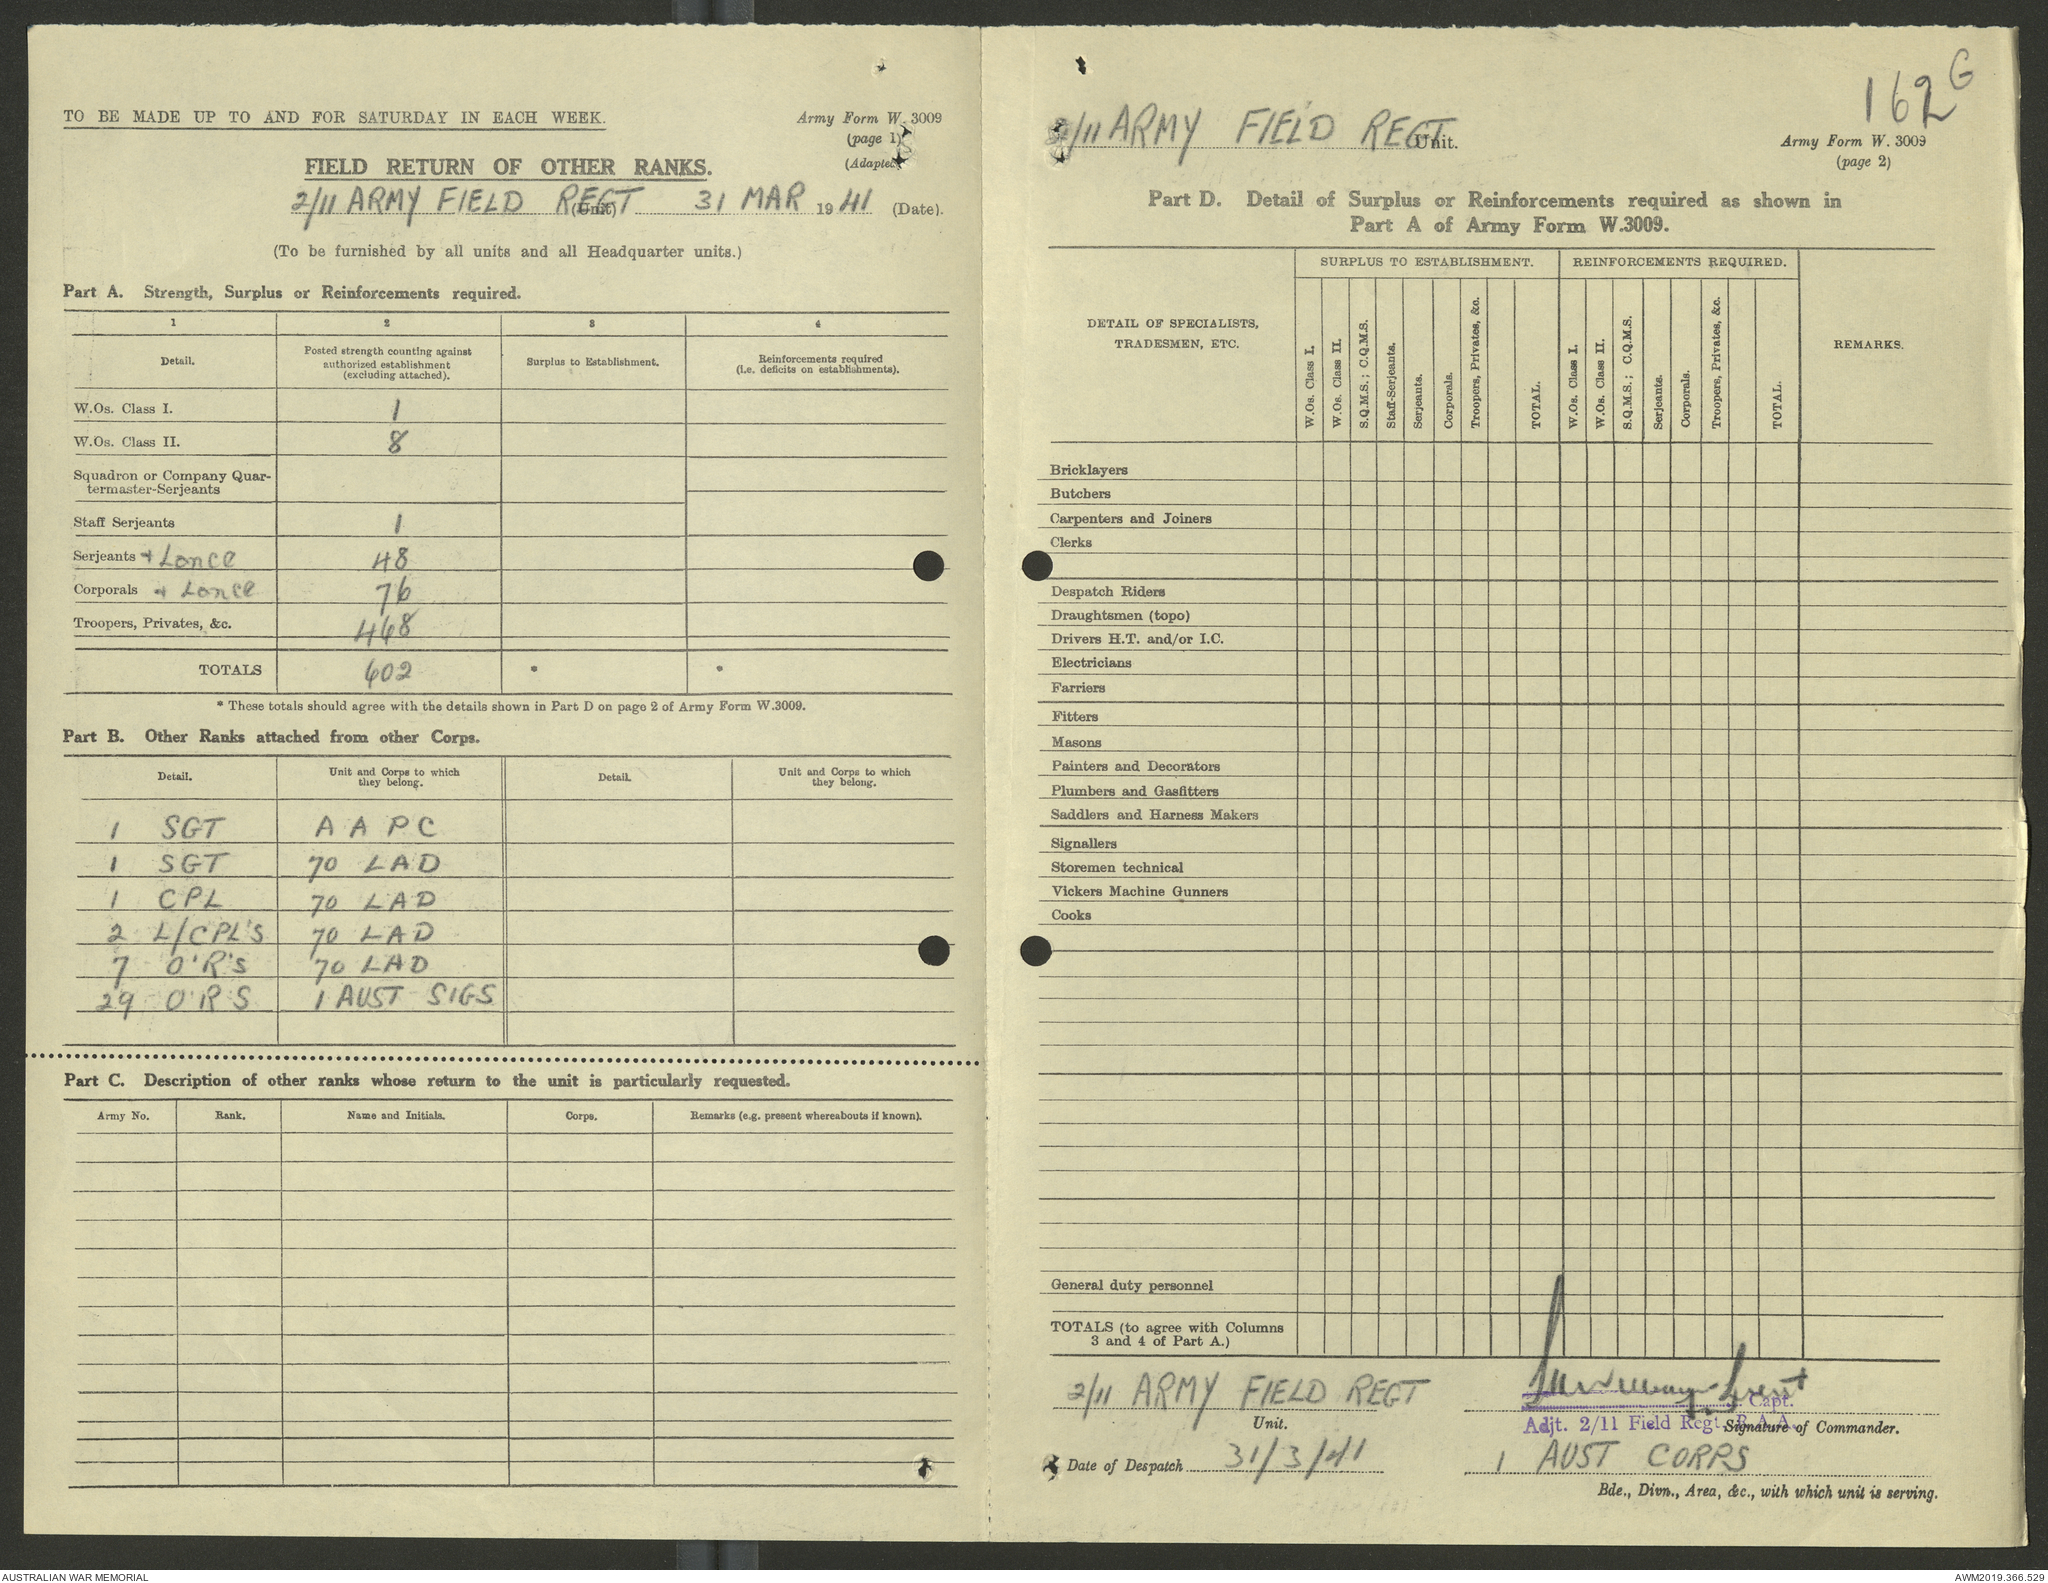 TO BE MADE UP TO AND FOR SATURDAY IN EACH WEEK.
Army Form W. 3009
(page 1)
(Adapted
FIELD RETURN OF OTHER RANKS.
2/11 ARMY FIELD REGT (Unit) 31 MAR 1941 (Date).
(To be furnished by all units and all Headquarter units.)
Part A. Strength, Surplus or Reinforcements required.
1 2 3 4
Detail. Posted strength counting against authorized establishment (excluding attached). Surplus to Establishment. Reinforcements required (i.e. deficits on establishments).
W.Os. Class I. 1
W.Os. Class II. 8
Squadron or Company Quar-
termaster-Serjeants
Staff Serjeants 1
Serjeants + Lance 48
Corporals + Lance 76
Troopers, Privates, &c. 468
TOTALS 602 * *
* These totals should agree with the details shown in Part D on page 2 of Army Form W.3009.
Part B. Other Ranks attached from other Corps.
Detail. Unit and Corps to which they belong. Detail. Unit and Corps to which they belong.
1 SGT A A P C
1 SGT 70 LAD
1 CPL 70 LAD
2 L/CPL'S 70 LAD
7 O'R'S 70 LAD
29 O'R S 1 AUST SIGS
Part C. Description of other ranks whose return to the unit is particularly requested.
Army No. Rank. Name and Initials. Corps. Remarks (e.g. present whereabouts if known).
162 G
2/11 ARMY FIELD REGT Unit.
Army Form W. 3009
(page 2)
Part D. Detail of Surplus or Reinforcements required as shown in
Part A of Army Form W.3009.
SURPLUS TO ESTABLISHMENT. REINFORCEMENTS REQUIRED.
DETAIL OF SPECIALISTS, TRADESMEN, ETC.
W.Os. Class I.
W.Os. Class II.
S.Q.M.S.; C.Q.M.S.
Staff-Serjeants.
Serjeants.
Corporals.
Troopers, Privates, &c.
TOTAL.
W.Os. Class I.
W.Os. Class II.
S.Q.M.S.; C.Q.M.S.
Serjeants.
Corporals.
Troopers, Privates, &c.
TOTAL.
REMARKS.
Bricklayers
Butchers
Carpenters and Joiners
Clerks
Despatch Riders
Draughtsmen (topo)
Drivers H.T. and/or I.C.
Electricians
Farriers
Fitters
Masons
Painters and Decorators
Plumbers and Gasfitters
Saddlers and Harness Makers
Signallers
Storemen technical
Vickers Machine Gunners
Cooks
General duty personnel
TOTALS (to agree with Columns
3 and 4 of Part A.)
2/11 ARMY FIELD REGT
Unit.
Capt.
Adjt. 2/11 Field Regt. R.A.A.
Signature of Commander.
Date of Despatch 31/3/41
1 AUST CORPS
Bde., Divn., Area, &c., with which unit is serving.
AUSTRALIAN WAR MEMORIAL
AWM2019.366.529